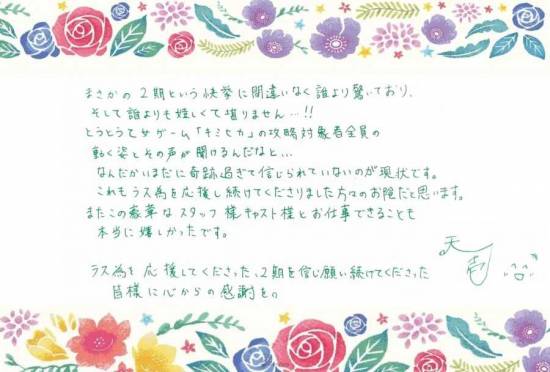 まさかの2期という快挙に間違いなく誰より驚いており、
そして誰よりも嬉しくて堪りません…!!
とうとう乙女ゲーム「キミセカ」の攻略対象者全員の
動く姿とその声が聞けるんだなと…
なんだかいまだに奇跡過ぎて信じられていないのが現状です。
これもラス為を応援し続けてくださりました方々のお陰だと思います。
またこの豪華なスタッフ様キャスト様とお仕事できることも
本当に嬉しかったです。
天壱
ラス為を応援してくださった、2期を信じ願い続けてくださった
皆様に心からの感謝を。